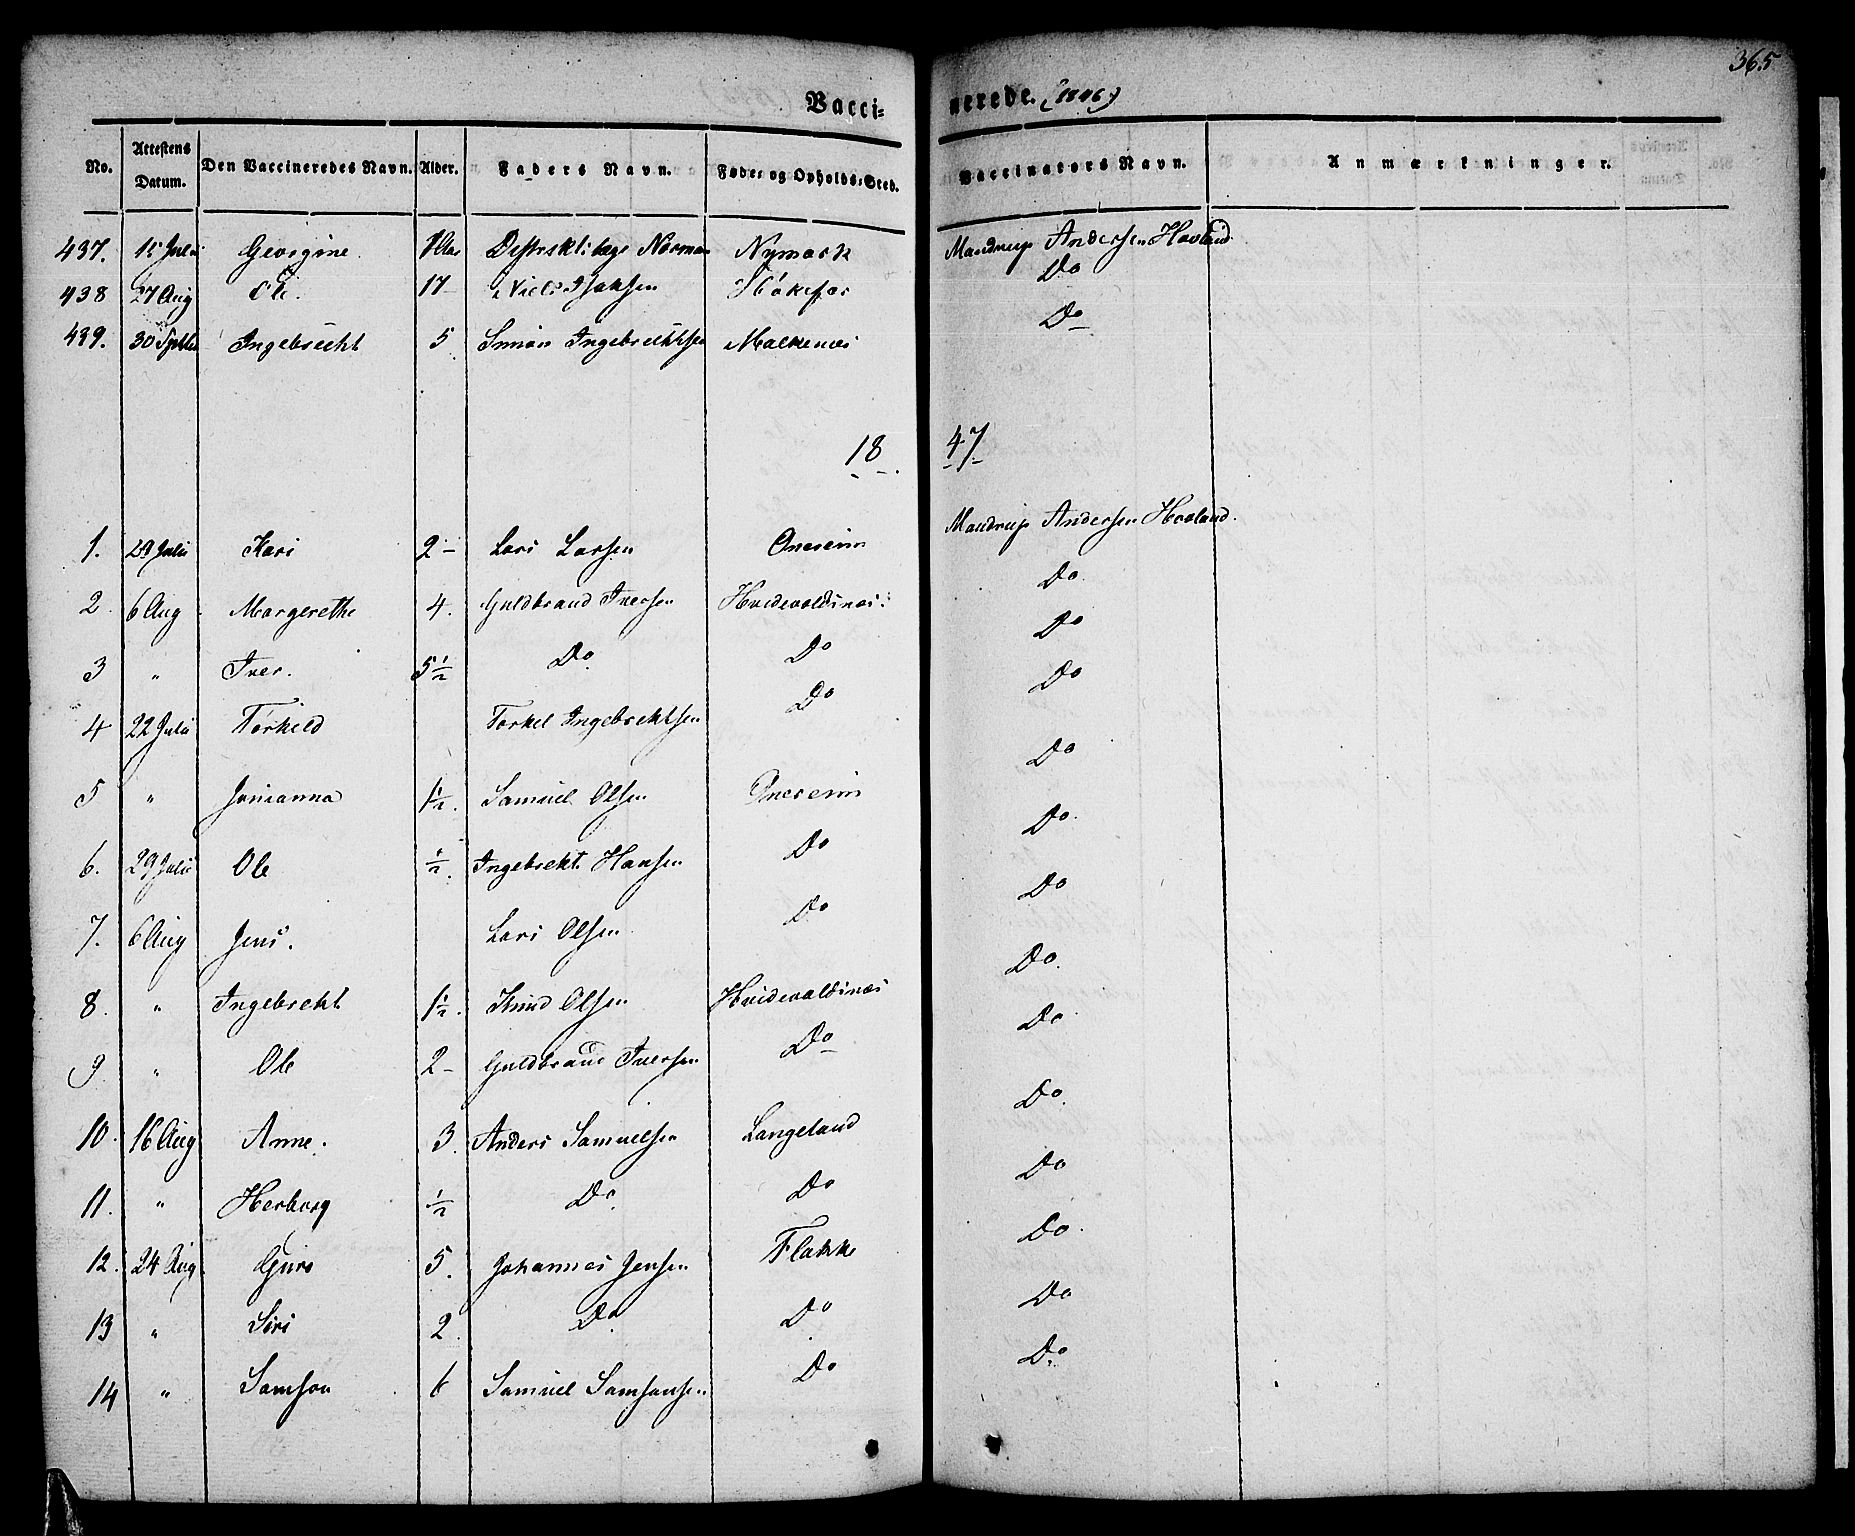 365
Vaccinerede. (1846)
No. Attestens Datum. Den Vaccineredes Navn. Alder. Faders Navn. Føde- og Opholds-Sted. Vaccinators Navn. Anmærkninger.
437. 15 Juli Georgine 1 Aar Distrektslæge Norman Nymark Mandrup Andersen Havland.
438 27 Aug Ole. 17 Niels Do
439. 30 Septbr Ingebrecht 5 Simon Ingebrecktsen Malkenæs Do
1847
1. 29 Juli Kari 2 Lars Larsen Oneseim Mandrup Andersen Hovland.
2. 6 Aug Margerethe 4. Guldbrand Iversen Hvidevoldsnæs. Do
3 " Iver. 5½ Do Do Do
4 22 Juli Torkeld Torkel Ingebrektsen Do Do
5 " Jonianna 1½. Samuel Olsen Oneseim Do
6. 29 Juli Ole ½. Ingebrekt Hansen Do Do
7. 6 Aug Jens. Lars Olsen Do Do
8. " Ingebrekt 1½. Knud Olsen Hvidevoldsnæs Do
9 " Ole 2 Guldbrand Iversen Do Do
10. 16 Aug Anne. 3. Anders Samuelsen Langeland Do
11. " Herborg ½ Do Do Do
12. 24 Aug Guro 5. Johannes Jensen Flakke Do
13 " Siri 2. Do Do Do
14 " Samson 6 Samuel Samsonsen Do Do